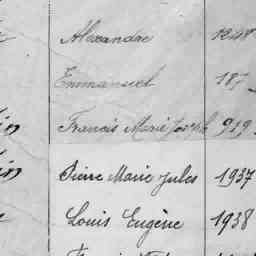 Alexandre
Emmanuel 187
Francis Marie Joseph 919
Pierre Marie Jules 1937
Louis Eugène 1938